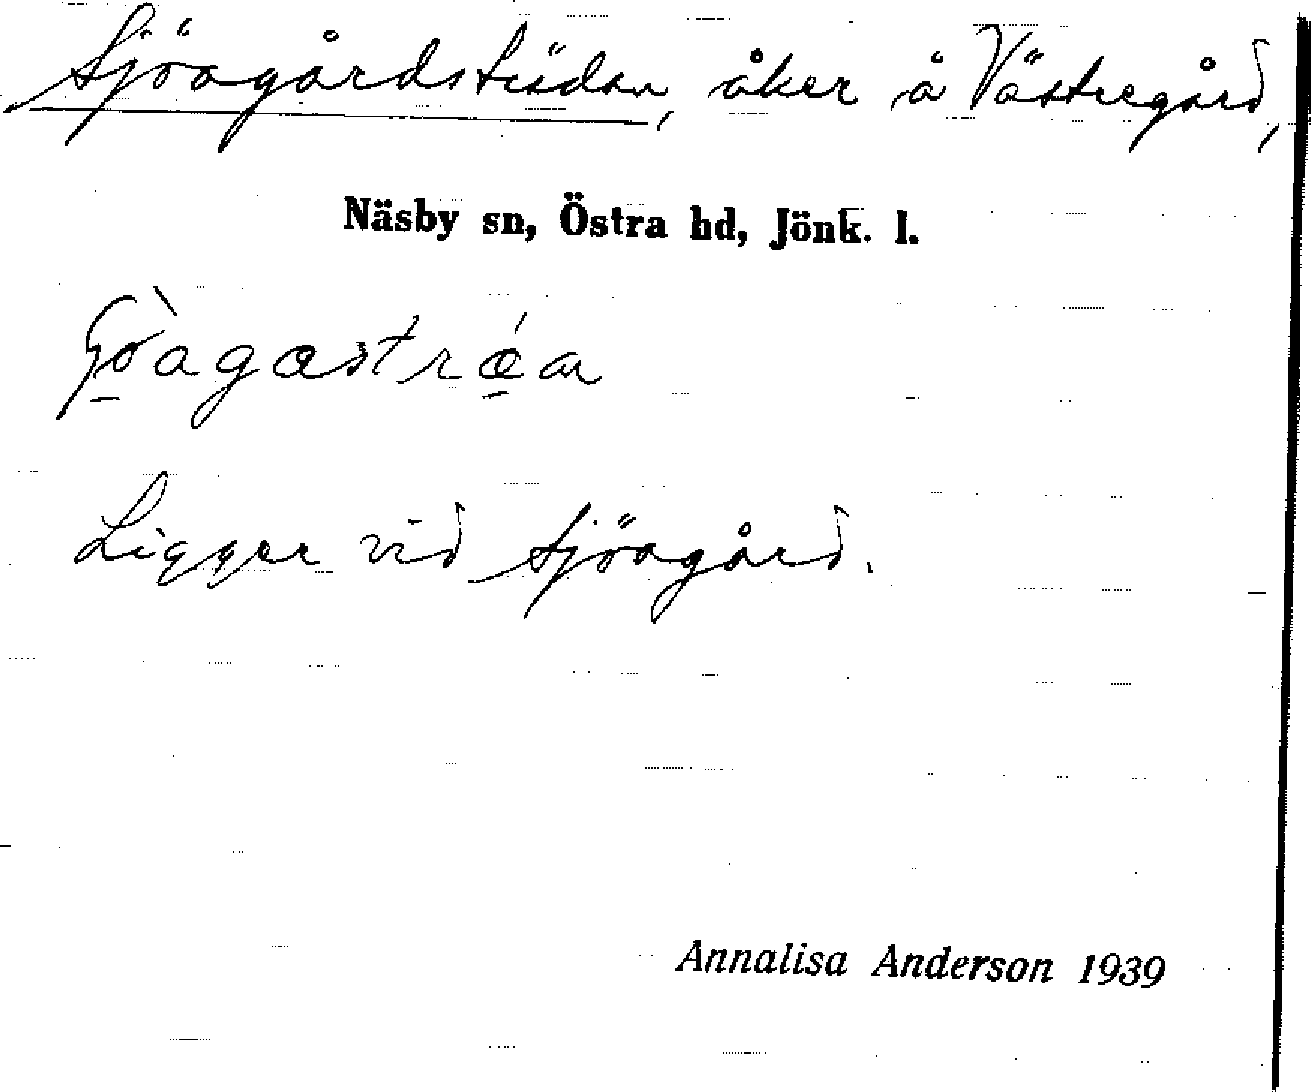 Sjöagårdsträdan, åker å Västregård,
Näsby sn, Östra hd, Jönk. l.
Ligger vid Sjöagård.
Annalisa Anderson 1939